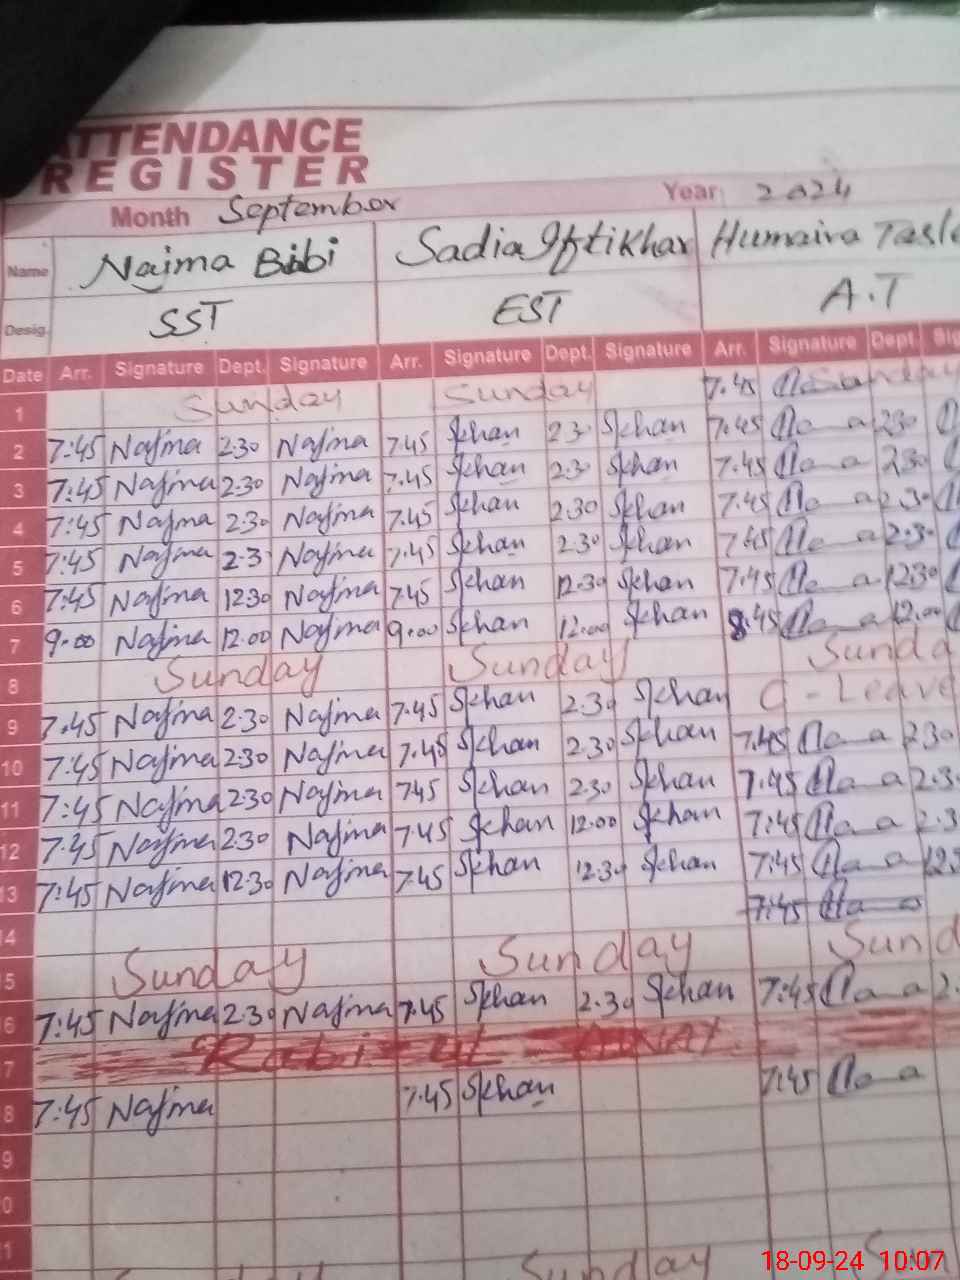 ATTENDANCE
REGISTER
Month September Year 2024
Name Najma Bibi Sadia Iftikhar Humaira
Desig. SST EST A.T
Date Arr. Signature Dept. Signature Arr. Signature Dept. Signature Arr. Signature Dept.
1 Sunday Sunday 7.45 Sunday
2 7:45 Najma 2:30 Najma 7.45 Skhan 2.30 Skhan 7.45 2.30
3 7:45 Najma 2.30 Najma 7.45 Skhan 2.30 Skhan 7.45 2.30
4 7:45 Najma 2.30 Najma 7.45 Skhan 2.30 Skhan 7.45 2.30
5 7:45 Najma 2.3 Najma 7.45 Skhan 2.30 Skhan 7.45 2.30
6 7:45 Najma 12.30 Najma 7.45 Skhan 12.30 Skhan 7.45 12.30
7 9.00 Najma 12.00 Najma 9.00 Skhan 12.00 Skhan 8.45 12.00
8 Sunday Sunday Sunda
9 7.45 Najma 2.30 Najma 7.45 Skhan 2.30 Skhan C-Leave
10 7:45 Najma 2.30 Najma 7.45 Skhan 2.30 Skhan 7.45 2.30
11 7:45 Najma 2.30 Najma 7.45 Skhan 2.30 Skhan 7.45 2.3
12 7:45 Najma 2.30 Najma 7.45 Skhan 12.00 Skhan 7:45 2.3
13 7:45 Najma 12.30 Najma 7.45 Skhan 12.30 Skhan 7:45
14 7:45
5 Sunday Sunday Sund
6 7:45 Najma 2.30 Najma 7.45 Skhan 2.30 Skhan 7:45 2.
7 Rabi ul Awal
8 7:45 Najma 7.45 Skhan 7:45
9
0
1 Sunday Sunday Sun
18-09-24 10:07